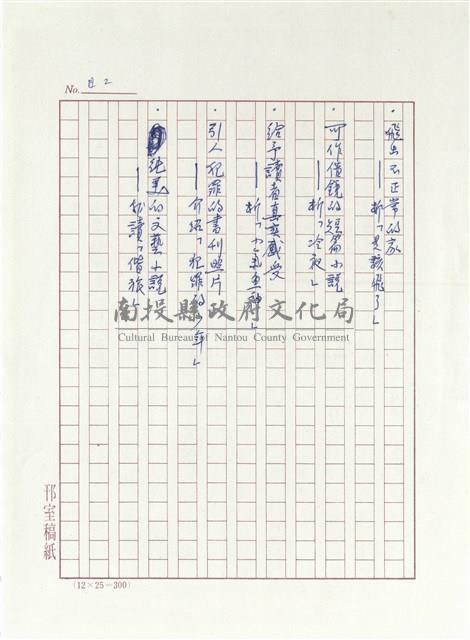 No. 目2
・飛出不正常的家
——析「是該飛了」
・可作借鏡的短篇小說
——析「冷夜」
・給予讀者真實感受
——析「
・引人犯罪的書刊照片
——介紹「犯罪的少年」
・純美的文藝小說
——試讀「偕旅」
南投縣政府文化局
Cultural Bureau of Nantou County Government
邗室稿紙
(12×25=300)